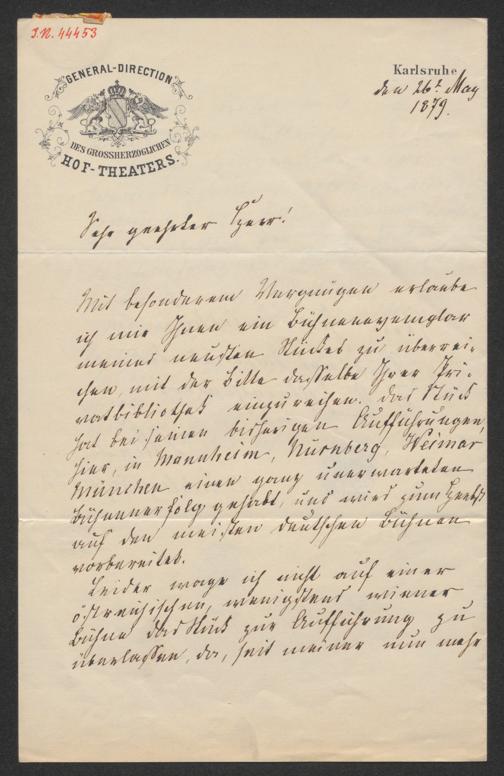 J.N. 44453
GENERAL-DIRECTION
DES GROSSHERZOGLICHEN
HOF-THEATERS.
Karlsruhe
den 26t. May
1879.
Sehr geehrter Herr!
Mit besonderem Vergnügen erlaube
ich mir Ihnen ein Bühnenexemplar
meines neusten Stückes zu überrei-
chen, mit der Bitte dasselbe Ihrer Pri-
vatbibliothek einzureihen. Das Stück
hat bei seinen bisherigen Aufführungen,
hier, in Mannheim, Nürnberg, Weimar
München einen ganz unerwarteten
Bühnenerfolg gehabt, und wird zum Herbst
auf den meisten deutschen Bühnen
vorbereitet.
Leider wage ich nicht auf einer
östreichischen, wenigstens wiener
Bühne das Stück zur Aufführung zu
überlassen, da, seit meiner nun mehr